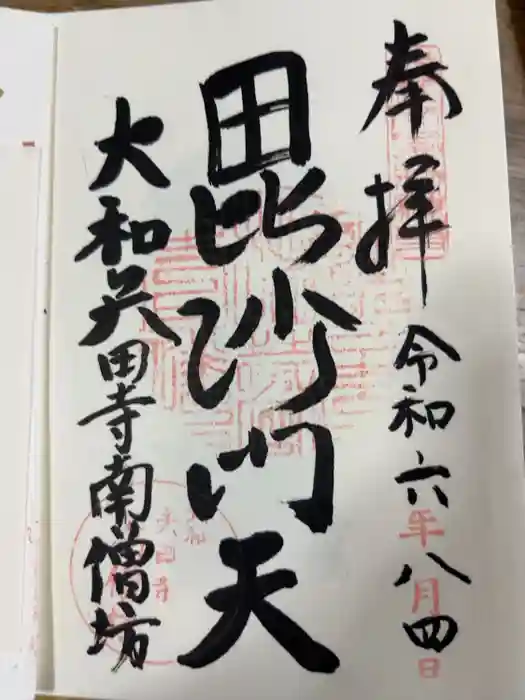 奉拝
令和六年八月四日
毘沙門天
大和矢田寺南僧坊